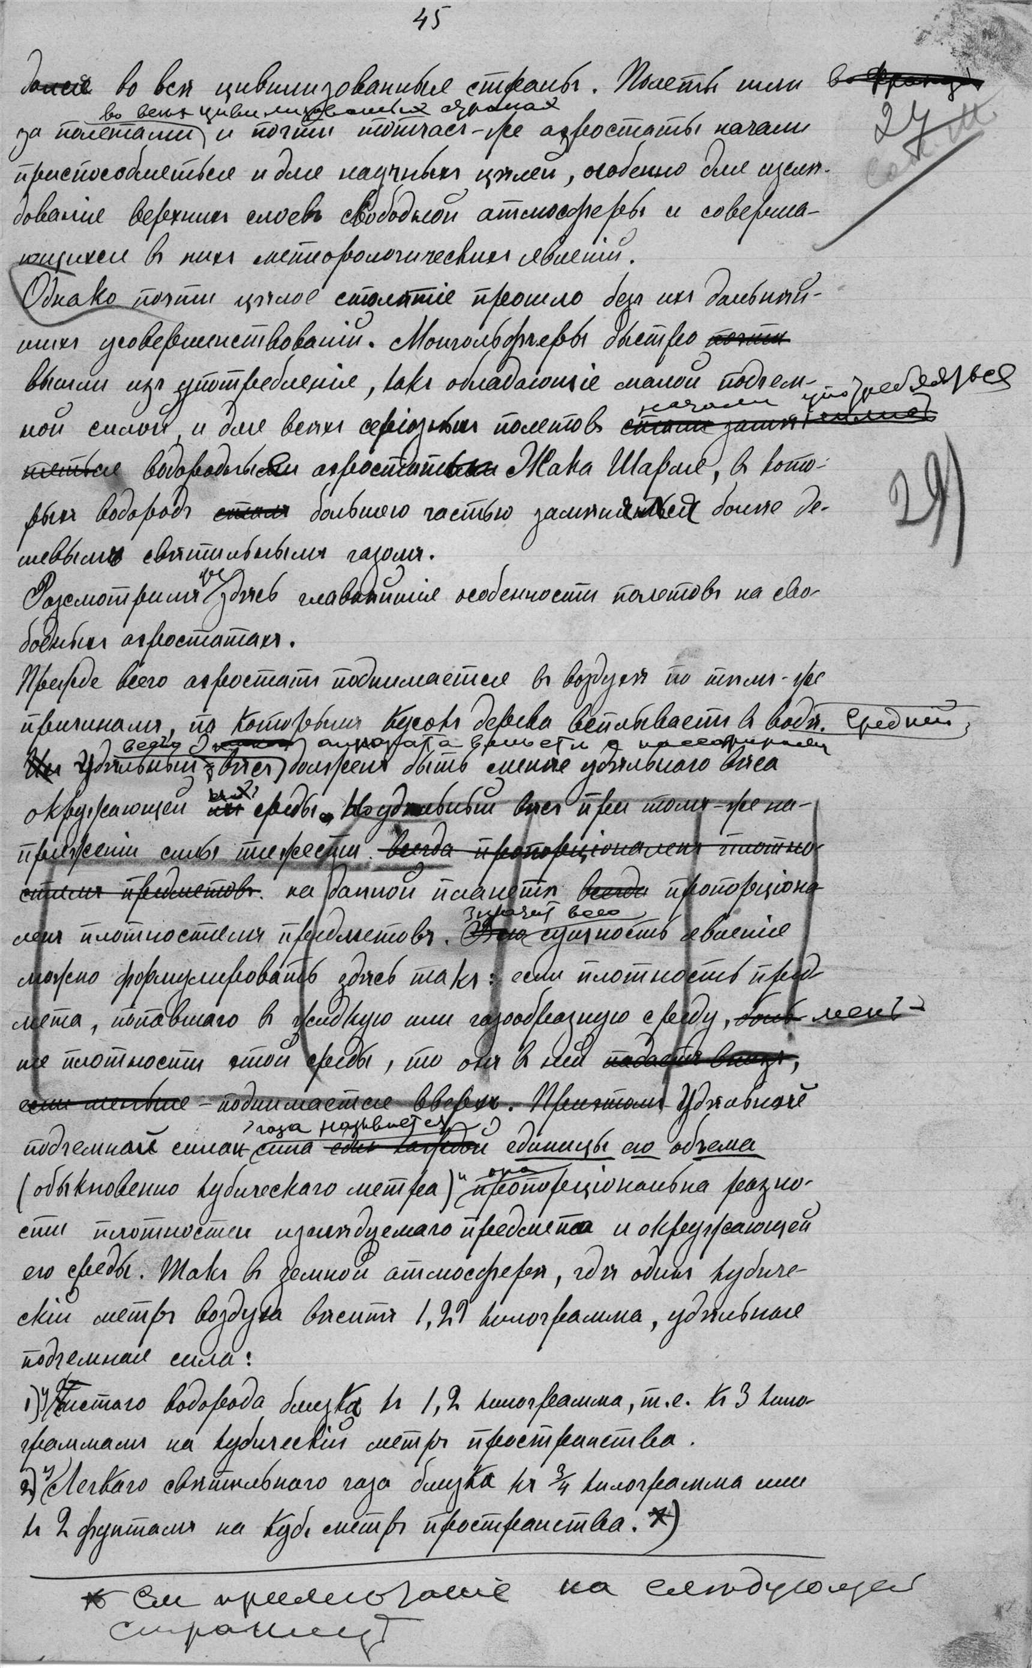 45
далее во все цивилизованныя страны. Полеты шли во Франціи
во всехъ цивилизованныхъ странахъ
за полетами, и почти тотчасъ-же аэростаты начали
24
приспособляться и для научныхъ цѣлей, особенно для изслѣ-
дованія верхнихъ слоевъ свободной атмосферы и соверша-
ющихся въ нихъ метеорологическихъ явленій.
Однако почти цѣлое столѣтіе прошло безъ ихъ дальнѣй-
шихъ усовершенствованій. Монгольфьеры быстро почти
вышли изъ употребленія, какъ обладающіе малой подъем-
начали употребляться
ной силой, и для всехъ серіозныхъ полетовъ стали
водородные аэростаты Жака Шарля, въ кото-
рыхъ водородъ сталъ большею частью замѣняться болѣе де-
29)
шевымъ свѣтильнымъ газомъ.
Разсмотримъ же здѣсь главнѣйшія особенности полетовъ на сво-
бодныхъ аэростатахъ.
Прежде всего аэростатъ поднимается въ воздухѣ по тѣмъ-же
причинамъ, по которымъ кусокъ дерева всплываетъ въ водѣ. Средній
всего аппарата вмѣстѣ съ пассажирами
удѣльный вѣсъ долженъ быть менѣе удѣльнаго вѣса
окружающей ихъ среды. Но удѣльный вѣсъ при томъ-же на-
пряженіи силы тяжести всегда пропорціоналенъ плотно-
стямъ предметовъ. на данной планетѣ всегда пропорціона-
ленъ плотностямъ предметовъ. сущность явленія
значитъ всего
можно формулировать здѣсь такъ: если плотность пред-
мета, попавшаго въ жидкую или газообразную среду, мень-
ше плотности этой среды, то онъ въ ней падаетъ внизъ,
если меньше - поднимается вверхъ. При этомъ Удѣльной
газа называется
подъемной силой сила единицы его объема
(обыкновенно кубическаго метра) и она пропорціональна разно-
сти плотностей изслѣдуемаго предмета и окружающей
его среды. Такъ въ земной атмосферѣ, гдѣ одинъ кубиче-
скій метръ воздуха вѣситъ 1,29 килограмма, удѣльная
подъемная сила:
1) У чистаго водорода близка къ 1,2 килограмма, т.е. къ 3 кило-
граммамъ на кубическій метръ пространства.
2) У Легкаго свѣтильнаго газа близка къ 3/4 килограмма или
къ 2 фунтамъ на куб. метръ пространства. *)
* См примѣчаніе на слѣдующей
страницѣ